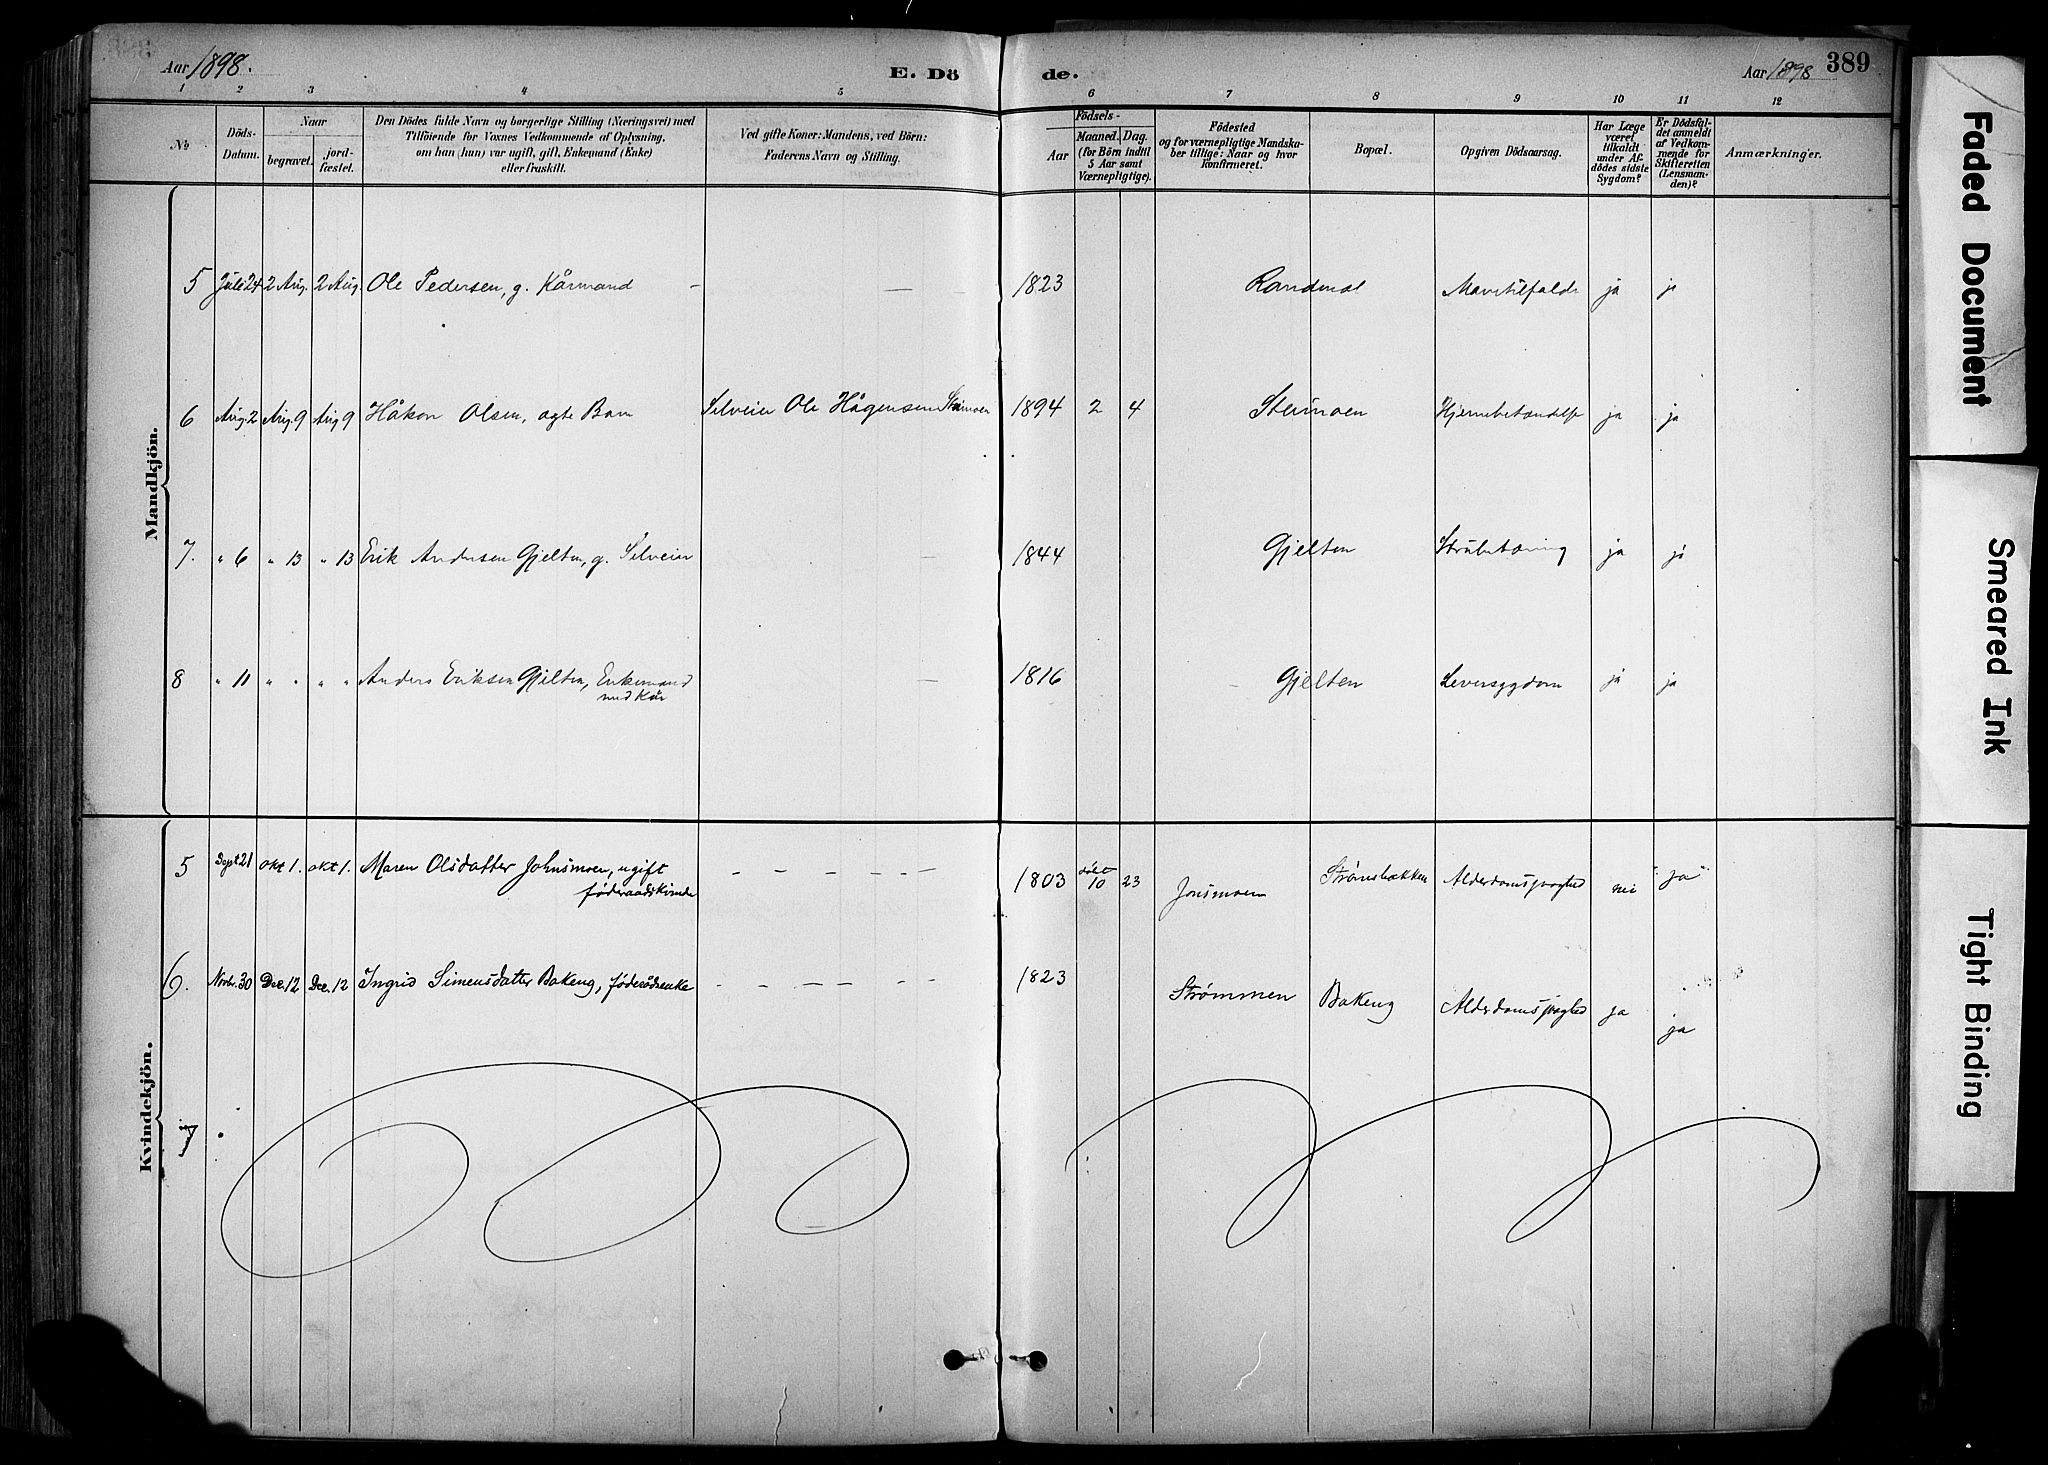 Aar 1898.
E. Döde.
Aar 1898
389
1 2 3 4 5 6 7 8 9 10 11 12
No
Döds-Datum.
Naar
begravet.
jord-fæstet.
Den Dödes fulde Navn og borgerlige Stilling (Næringsvei) med
Tilföiende for Voxnes Vedkommende af Oplysning,
om han (hun) var ugift, gift, Enkemand (Enke)
eller fraskilt.
Ved gifte Koner: Mandens, ved Börn:
Faderens Navn og Stilling.
Födsels-
Aar
Maaned. Dag.
(for Börn indtil
5 Aar samt
Værnepligtige).
Födested
og for værnepligtige Mandska-
ber tillige: Naar og hvor
konfirmeret.
Bopæl.
Opgiven Dödsaarsag.
Har Læge
været
tilkaldt
under Af-
dödes sidste
Sygdom?
Er Dödsfal-
det anmeldt
af Vedkom-
mende for
Skifteretten
(Lensman-
den)?
Anmærkninger.
Mandkjön.
5 Juli 24 2 Aug. 2 Aug. Ole Pedersen, g. Kårmand - — 1823 Randmæl Mavetilfælde ja ja
6 Aug. 2 Aug. 9 Aug 9 Håkon Olsen, ægte Barn Selveier Ole Hågensen Steimoen 1894 2 4 Steimoen Hjernebetændelse ja ja
7. " 6 " 13 " 13 Erik Andersen Gjelten, g. Selveier — 1844 Gjelten Strubetæring ja ja
8 " 11 " " " " Anders Eriksen Gjelten, Enkemand
med Kår — 1816 Gjelten Leversygdom ja ja
Kvindekjön.
5 Sept 21 okt 1. okt 1. Maren Olsdatter Johnsmoen, ugift
føderaadskvinde - - - - - — 1803 døbt
10 23 Jonsmoen Strømsbakken Alderdomssvaghed nei "ja"
6. Novbr. 30 Dec. 12 Dec. 12 Ingrid Simensdatter Bakeng, føderådsenke - - - - - - 1823 Strømmen Bakeng Alderdomssvaghed ja ja
7
Faded Document
Smeared Ink
Tight Binding